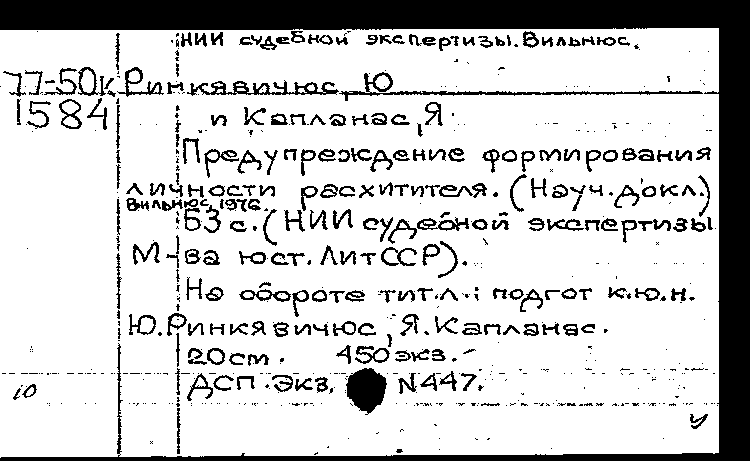 НИИ судебной экспертизы. Вильнюс.
77-50к Ринкявичюс, Ю
1584 и Капланас, Я.
Предупреждение формирования
личности расхитителя. (Науч. докл.)
Вильнюс, 1976.
53 с. (НИИ судебной экспертизы
М-ва юст. ЛитССР).
На обороте тит.л.: подгот к.ю.н.
Ю.Ринкявичюс, Я.Капланас.
20см. 450 экз.-
10 ДСП. Экз. N447.